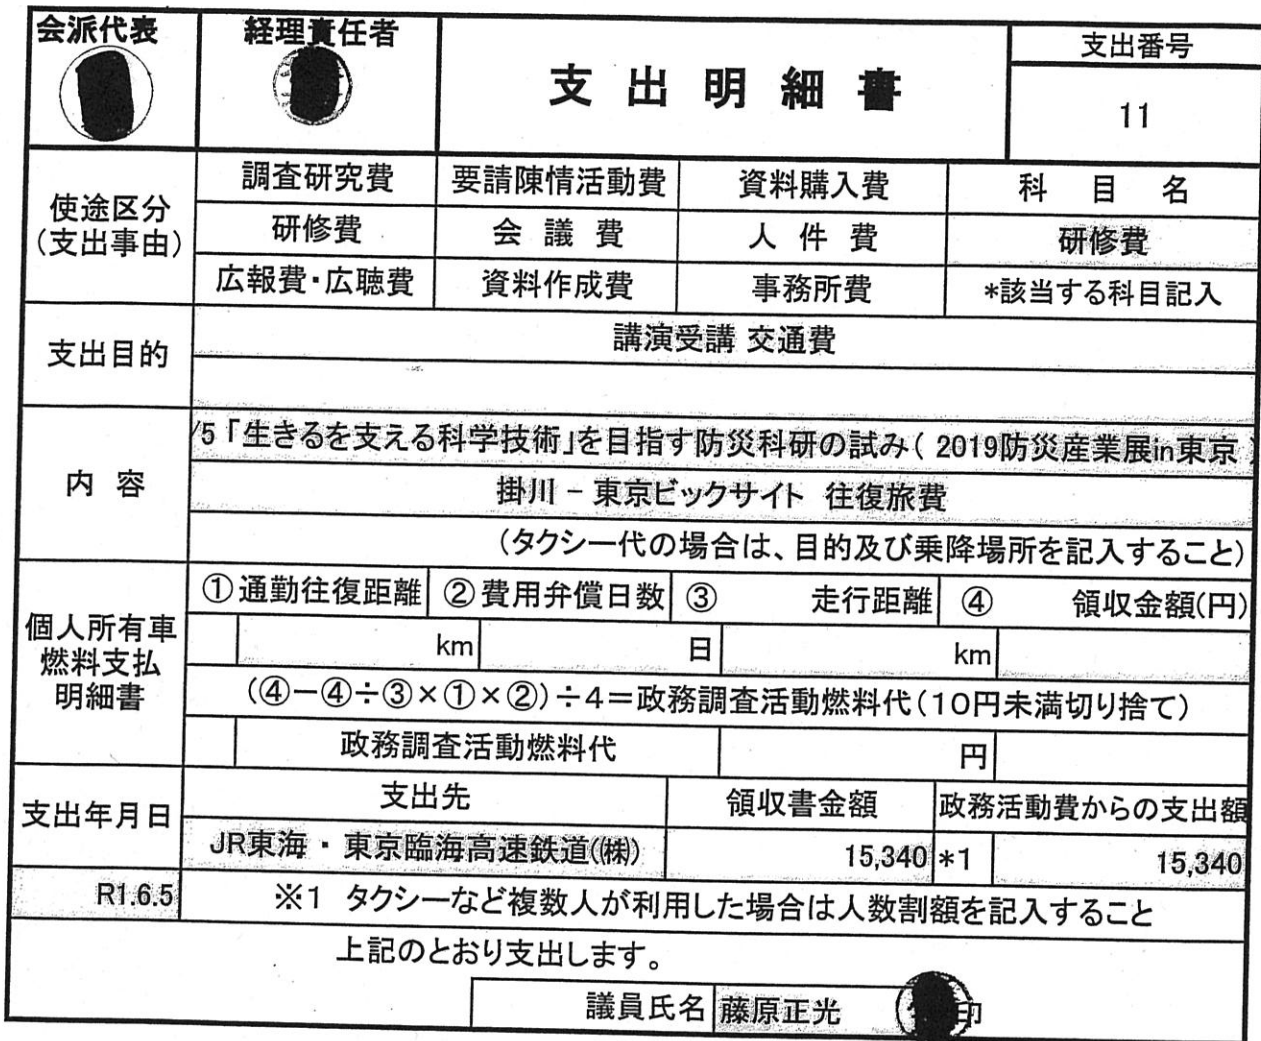 会派代表 経理責任者 支出明細書 支出番号
11
使途区分
(支出事由)
調査研究費 要請陳情活動費 資料購入費 科目名
研修費 会議費 人件費 研修費
広報費・広聴費 資料作成費 事務所費 *該当する科目記入
支出目的 講演受講 交通費
内容
/5「生きるを支える科学技術」を目指す防災科研の試み( 2019防災産業展in東京 )
掛川 − 東京ビックサイト 往復旅費
(タクシー代の場合は、目的及び乗降場所を記入すること)
個人所有車
燃料支払
明細書
①通勤往復距離 ②費用弁償日数 ③ 走行距離 ④ 領収金額(円)
km 日 km
(④−④÷③×①×②)÷4=政務調査活動燃料代(10円未満切り捨て)
政務調査活動燃料代 円
支出年月日 支出先 領収書金額 政務活動費からの支出額
JR東海・東京臨海高速鉄道(㈱) 15,340 *1 15,340
R1.6.5 ※1 タクシーなど複数人が利用した場合は人数割額を記入すること
上記のとおり支出します。
議員氏名 藤原正光 印